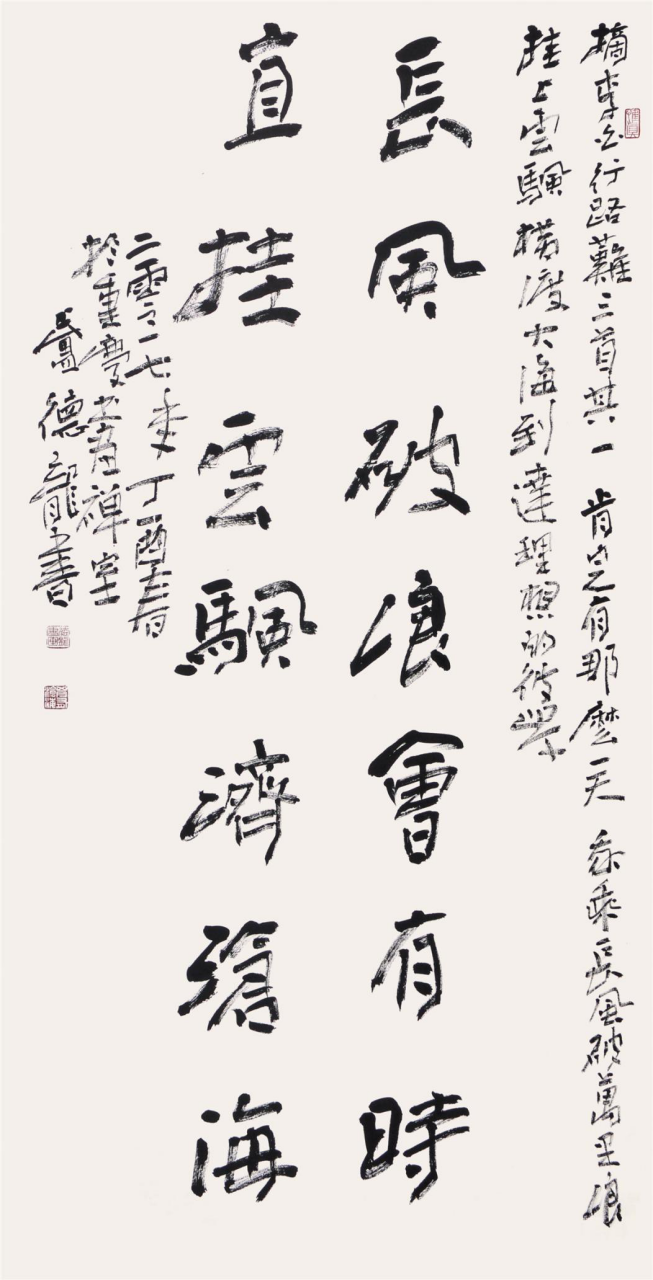 摘李白行路難三首其一 肯定有那麼一天 我乘長風破萬里浪
挂上雲颿橫渡大海到達理想的彼岸
長風破浪會有時
直挂雲颿濟滄海
二零一七年丁酉春
於重慶禪室
盧德龍書